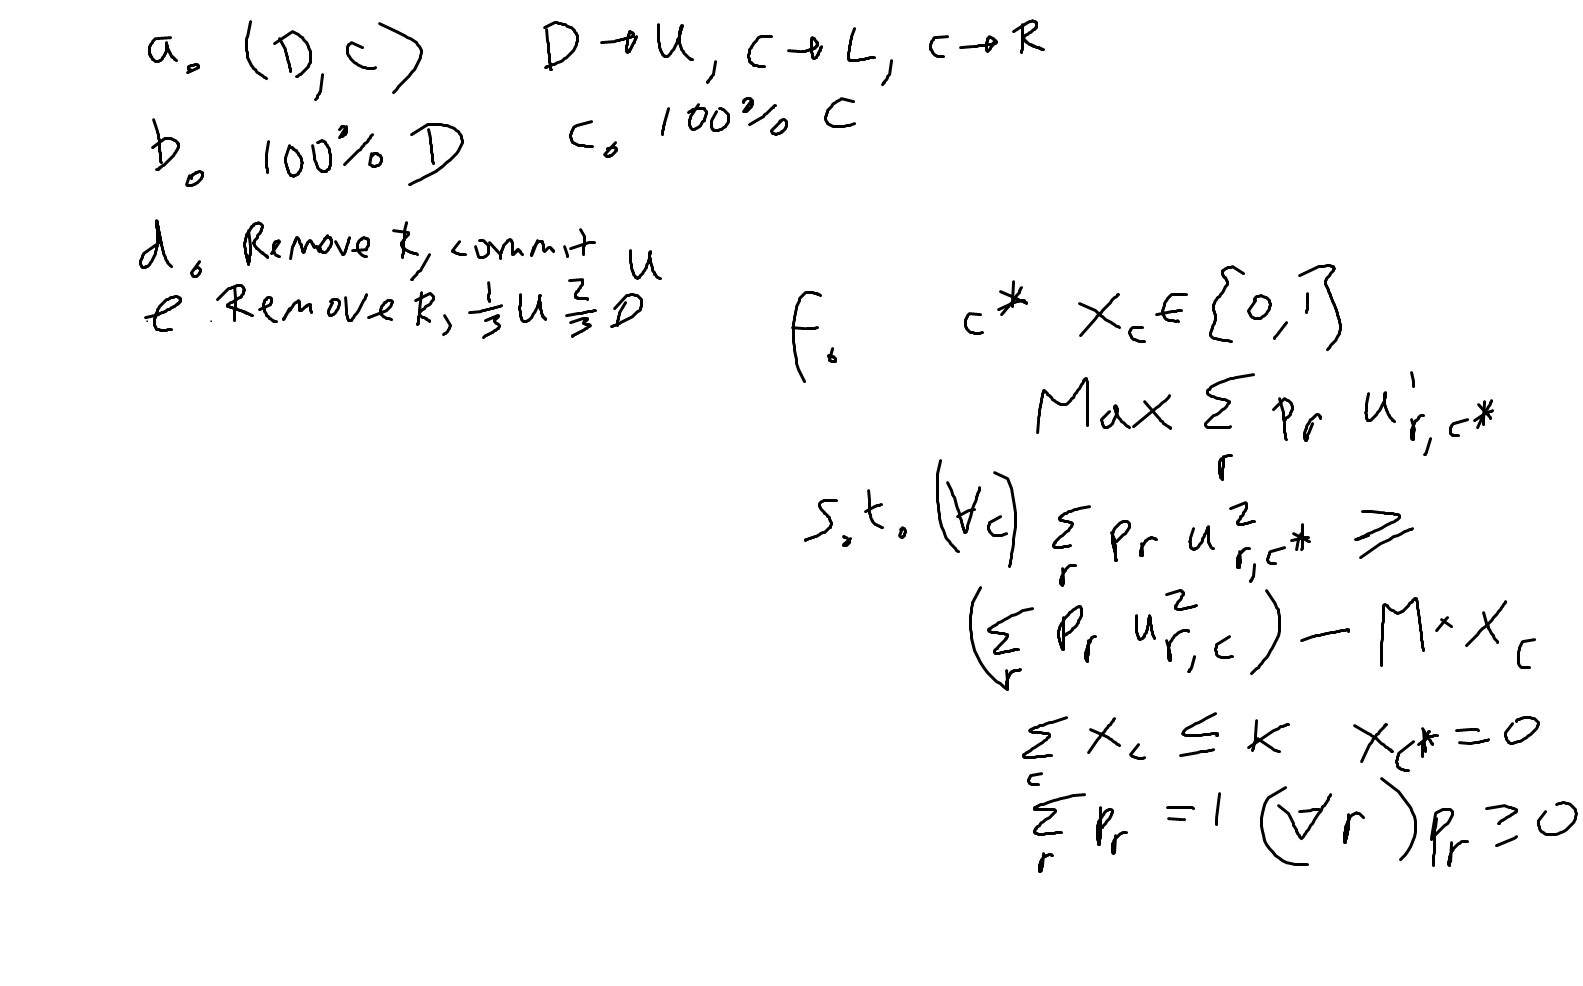 a. (D, C) D → U, C → L, C → R
b. 100% D c. 100% C
d. Remove R, commit U
e Remove R, 1/3 U 2/3 D
f. c* x_c ∈ {0,1}
Max Σ_r p_r u^1_{r,c*}
s.t. (∀c) Σ_r p_r u^2_{r,c*} ≥
(Σ_r p_r u^2_{r,c}) - M × x_c
Σ_c x_c ≤ k x_{c*} = 0
Σ_r p_r = 1 (∀r) p_r ≥ 0